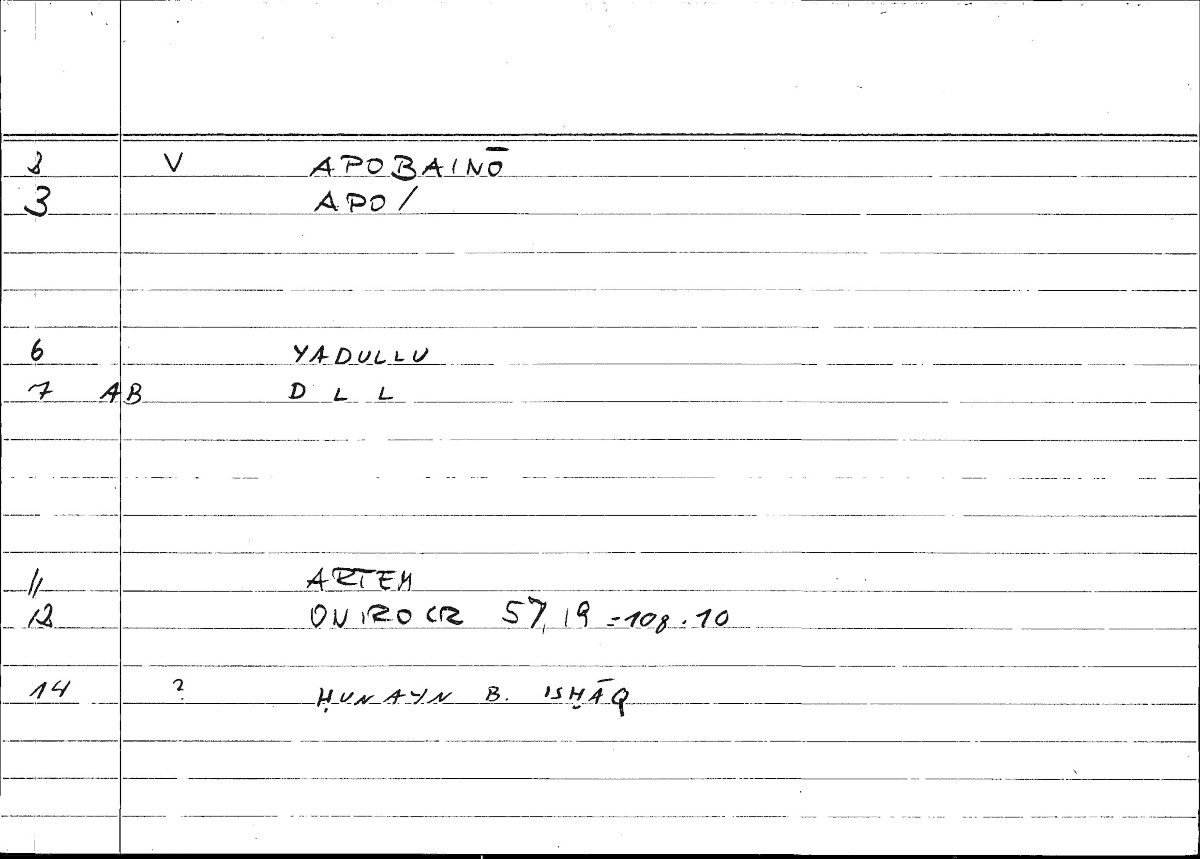 2 V APOBAINŌ
3 APO/
6 YADULLU
7 AB D L L
11 ARTEM
12 ONIROCR 57,19 = 108.10
14 ? ḤUNAYN B. ISḤĀQ